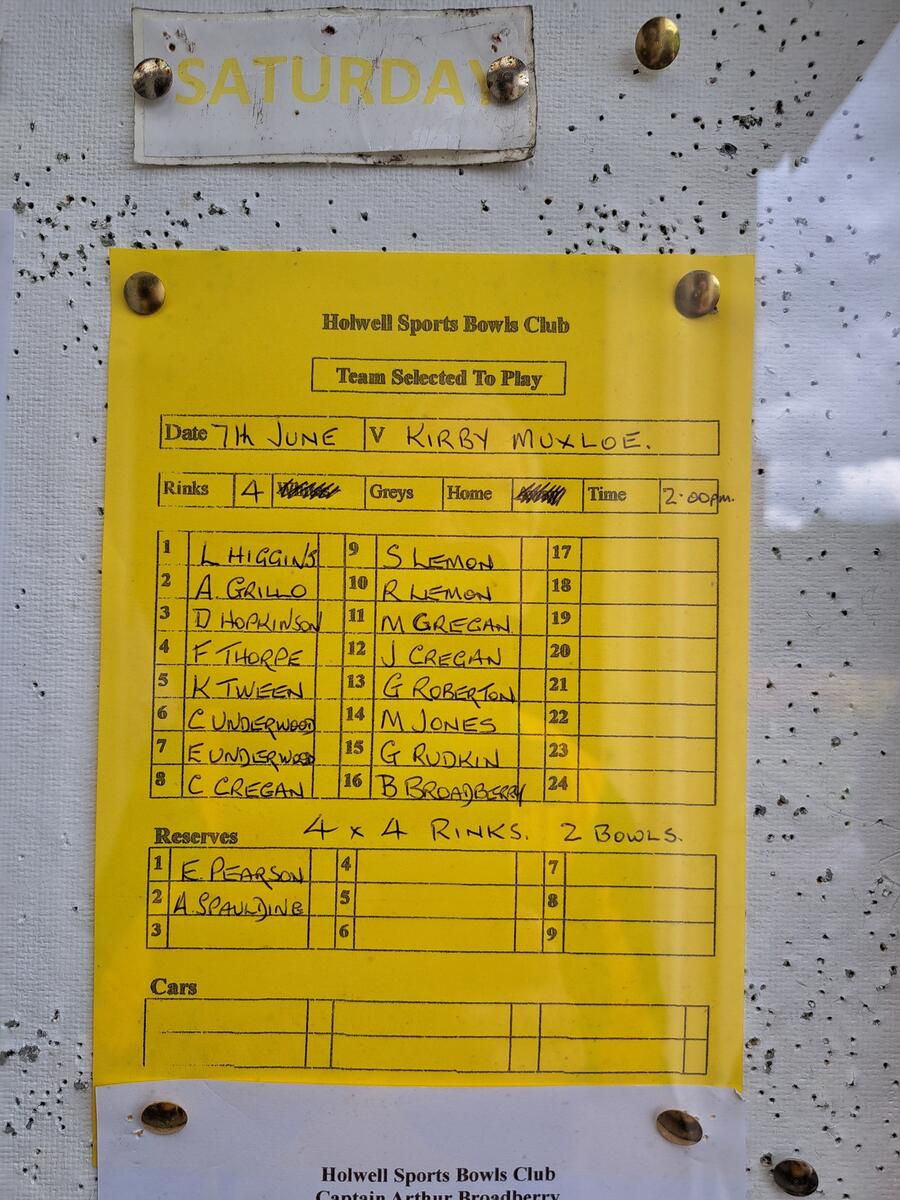 SATURDAY
Holwell Sports Bowls Club
Team Selected To Play
Date 7th JUNE V KIRBY MUXLOE.
Rinks 4 Greys Home Time 2.00pm.
1 L HIGGINS 9 S LEMON 17
2 A GRILLO 10 R LEMON 18
3 D HOPKINSON 11 M GREGAN 19
4 F THORPE 12 J CREGAN 20
5 K TWEEN 13 G ROBERTON 21
6 C UNDERWOOD 14 M JONES 22
7 E UNDERWOOD 15 G RUDKIN 23
8 C CREGAN 16 B BROADBERRY 24
Reserves 4 x 4 RINKS. 2 BOWLS.
1 E. PEARSON 4 7
2 A. SPAULDING 5 8
3 6 9
Cars
Holwell Sports Bowls Club
Captain Arthur Broadberry